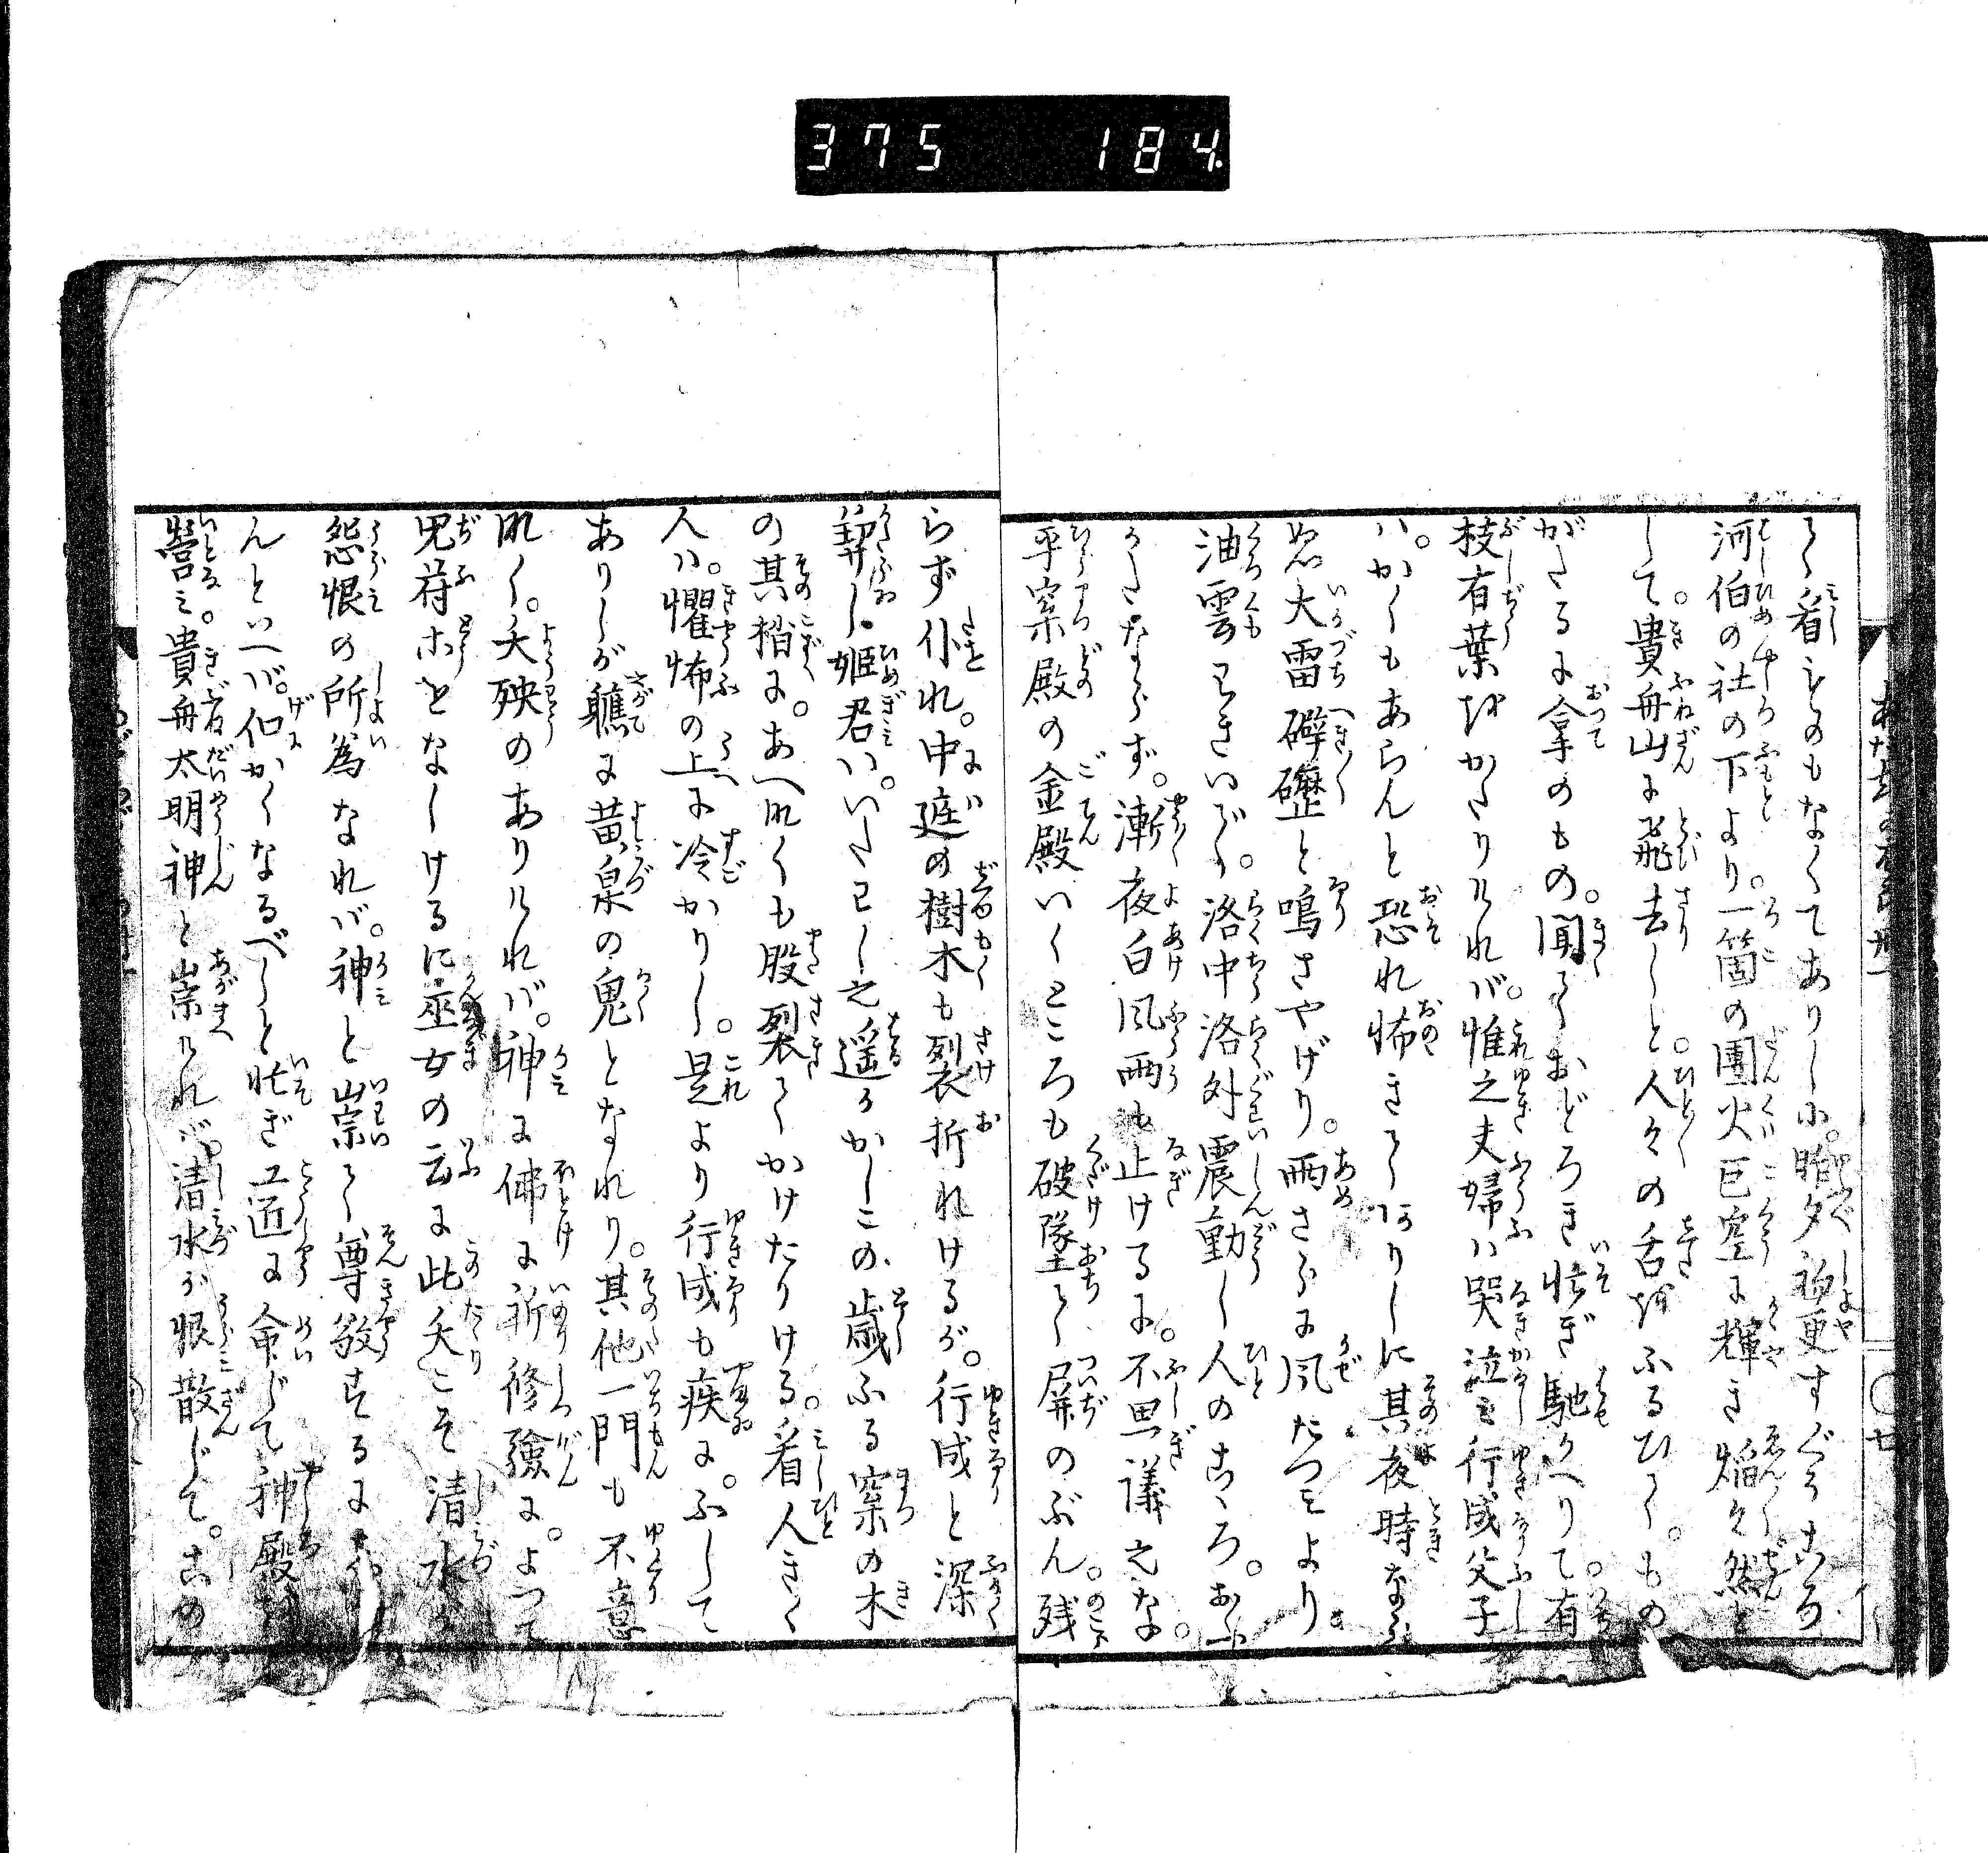 375 184
て看ものもなくてありし小。昨夕初更すぐるころ
河伯の社の下より。一箇の團火巨空に輝き焔々然と
して。貴舟山に飛去しと。人々の舌をふるひて。もの
がたるに拿のもの。聞ておどろき忙ぎ馳かへりて。有
枝有葉をかたりければ。惟之夫婦ハ哭泣ミ行成父子
ハ。かくもあらんと恐れ怖きてありしに其夜時なら
ぬ大雷礔礰と鳴さやげり。雨さらに風たつミより
油雲わきいで。洛中洛外震動し人のこゝろ。おふ
かたならず。漸夜白風雨も止けるに。不思議之な。
平案殿の金殿いくところも破墜て屏のぶん。残
らず仆れ。中庭の樹木も裂折れけるが。行成と深
契し姫君ハ。いたわし之遥かしこの歳ふる案の木
の其梢に。あへなくも股裂てかけたりける。看人きく
人ハ。懼怖の上に冷かりし。是より行成も疾に。ふして
ありしが軈に黄泉の鬼となれり。其他一門も不意
なく。夭殃のありければ。神に佛に祈修験に。よつて
咒荷ホとなしけるに巫女の云に此夭こそ清水が
怨恨の所為なれバ。神と崇て尊敬するに
んといへバ。似かくなるべしと忙ぎ工匠に命じて神殿を
營ミ。貴舟太明神と崇ければ。清水が恨散じて。この